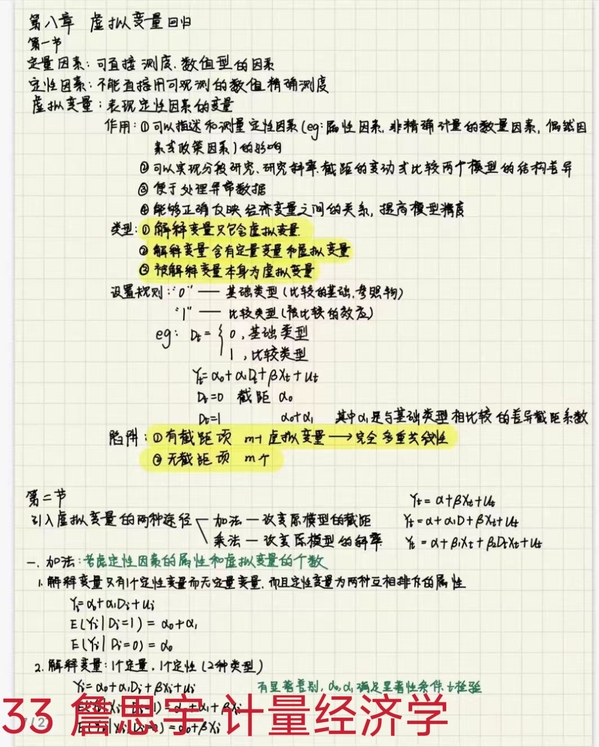 第八章 虚拟变量回归
第一节
定量因素：可直接测度、数值型的因素
定性因素：不能直接用可观测的数值精确测度
虚拟变量：表现定性因素的变量
作用：①可以描述和测量定性因素（eg：属性因素，非精确计量的数量因素，偶然因
素或政策因素）的影响
②可以实现分段研究、研究斜率、截距的变动或比较两个模型的结构差异
③便于处理异常数据
④能够正确反映经济变量之间的关系，提高模型精度
类型：①解释变量只包含虚拟变量
②解释变量含有定量变量和虚拟变量
③被解释变量本身为虚拟变量
设置规则："0" —— 基础类型（比较的基础，参照物）
"1" —— 比较类型（被比较的效应）
eg: Dt = { 0，基础类型
1，比较类型
Yt = α0 + α1Dt + βXt + ut
Dt=0 截距 α0
Dt=1 α0+α1 其中α1是与基础类型相比较的差异截距系数
陷阱：①有截距项 m-1 虚拟变量 → 完全多重共线性
②无截距项 m个
第二节
引入虚拟变量的两种途径 加法 — 改变原模型的截距
乘法 — 改变原模型的斜率
Yt = α + βXt + ut
Yt = α + α1D + βXt + ut
Yt = α + β1Xt + β2DtXt + ut
一. 加法：考虑定性因素的属性和虚拟变量的个数
1. 解释变量只有1个定性变量而无定量变量，而且定性变量为两种互相排斥的属性
Yi = α0 + α1Di + ui
E(Yi | Di=1) = α0 + α1
E(Yi | Di=0) = α0
2. 解释变量：1个定量，1个定性（2种类型）
Yi = α0 + α1Di + βXi + ui
有显著差别，α0, α1 满足显著性条件，t检验
33 詹思宇 计量经济学